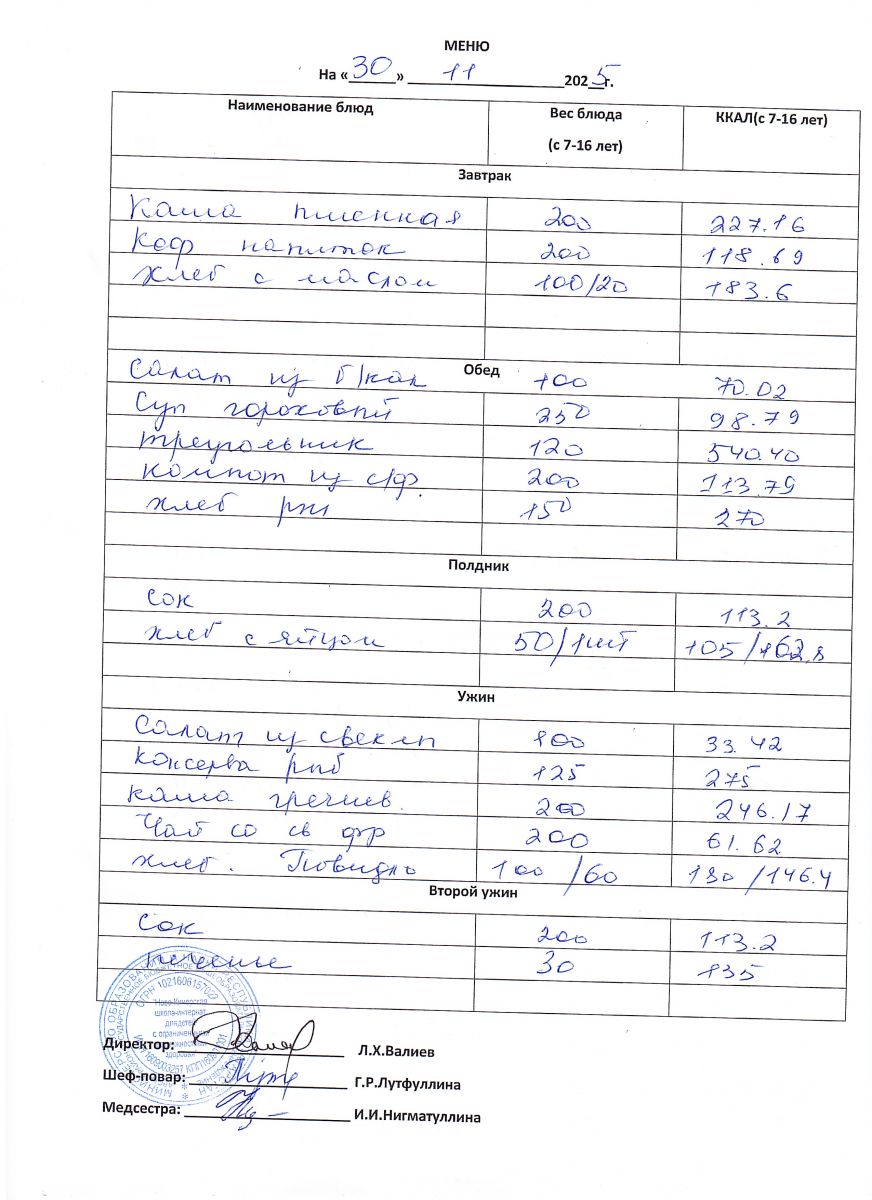 МЕНЮ
На «30» 11 2025г.
Наименование блюд Вес блюда (с 7-16 лет) ККАЛ(с 7-16 лет)
Завтрак
Каша пшенная 200 227.16
Коф напиток 200 118.69
Хлеб с маслом 100/20 183.6
Обед
Салат из б/кап 100 70.02
Суп гороховый 250 98.79
треугольник 120 540.40
компот из с/ф. 200 113.79
хлеб рж 150 270
Полдник
сок 200 113.2
хлеб с яйцом 50/1шт 105/162,8
Ужин
Салат из свеклы 100 33.42
Консерва рыб 125 275
каша гречнев. 200 246.17
Чай со св фр 200 61.62
хлеб. Повидло 100/60 180/146.4
Второй ужин
Сок 200 113.2
печенье 30 135
ОГРН 1021606157029
школа-интернат
для детей
с ограниченными
Директор: Л.Х.Валиев
Шеф-повар: Г.Р.Лутфуллина
Медсестра: И.И.Нигматуллина